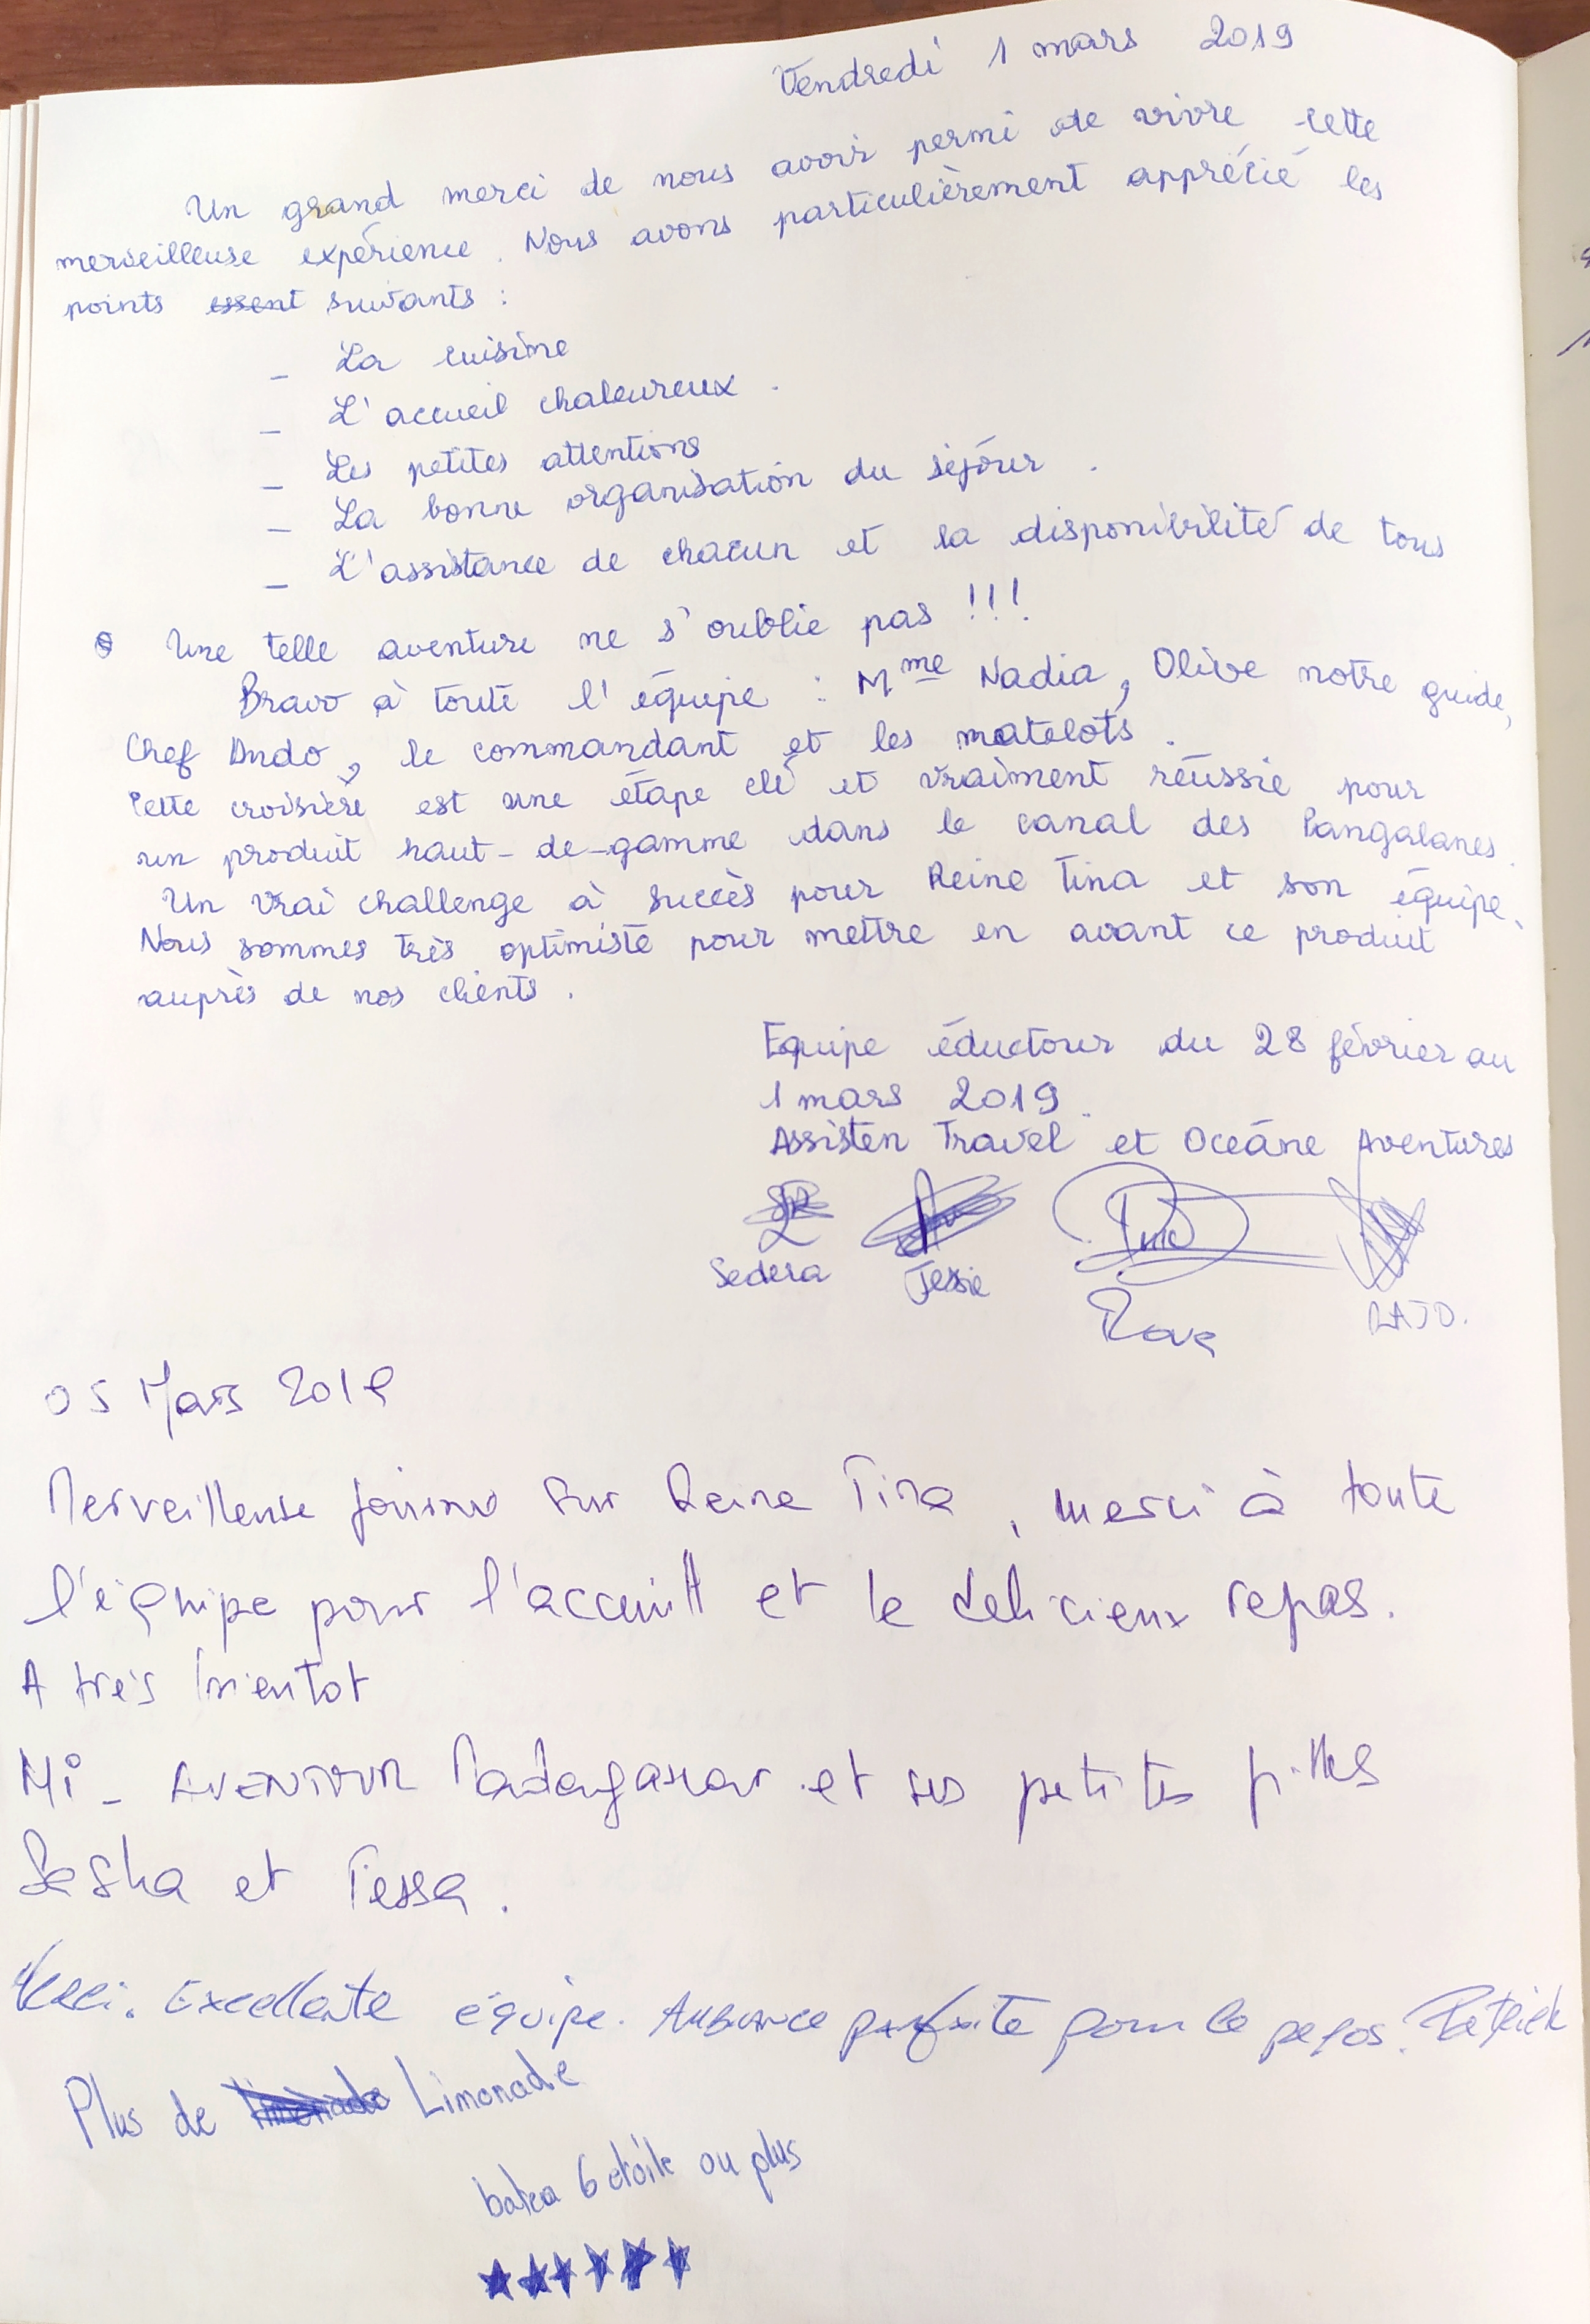 Vendredi 1 mars 2019
Un grand merci de nous avoir permi de vivre cette
merveilleuse expérience. Nous avons particulièrement apprécié les
points essent suivants :
_ La cuisine
_ L'accueil chaleureux.
_ Les petites attentions
_ La bonne organisation du séjour.
_ L'assistance de chacun et la disponibilité de tous
Une telle aventure ne s'oublie pas !!!
Bravo à toute l'équipe : Mme Nadia, Olive notre guide,
Chef Dudo, le commandant et les matelots.
Cette croisière est une étape clé et vraiment réussie pour
un produit haut-de-gamme dans le canal des Pangalanes.
Un vrai challenge à succès pour Reine Tina et son équipe.
Nous sommes très optimiste pour mettre en avant ce produit
auprès de nos clients.
Equipe éductour du 28 février au
1 mars 2019.
Assisten Travel et Océane Aventures
Sedera Jessie
Rova RAJO.
05 Mars 2019
Merveilleuse journée sur Reine Tina, merci à toute
l'équipe pour l'accueill et le delicieux repas.
A très bientot
Mi-AVENTOUR Madagascar et ses petites filles
Sasha et Tessa.
Merci. Excellente équipe. Ambiance parfaite pour le repos. Patrick
Plus de limonade Limonade
batea 6 etoile ou plus
★★★★★★